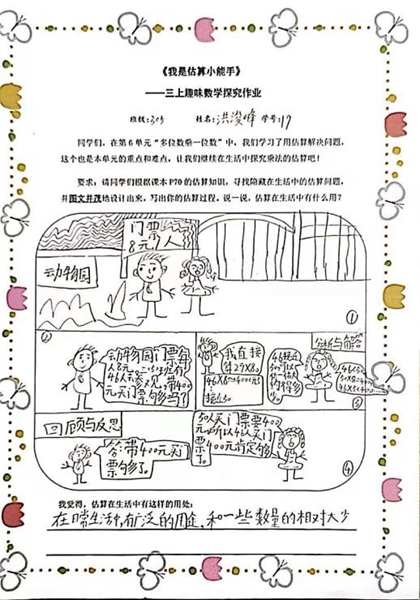 《我是估算小能手》
——三上趣味数学探究作业
班级:303 姓名:洪浚峰 学号:17
同学们，在第6单元“多位数乘一位数”中，我们学习了用估算解决问题，
这个也是本单元的重点和难点，让我们继续在生活中探究乘法的估算吧！
要求：请同学们根据课本P70的估算知识，寻找隐藏在生活中的估算问题，
并图文并茂地设计出来，写出你的估算过程。说一说，估算在生活中有什么用？
门票
8元/人
动物园
①
②
动物园门票每
人8元
46人
带400
元买门票够吗？
我直接
估
分析与解答
46接近
50
③
回顾与反思
答：带400元买门
票够了。
50人买门票要400
元，所以46人买门
票400元肯定够
了。
④
我觉得，估算在生活中有这样的用处：
在日常生活中，有广泛的用途，和一些数量的相对大少